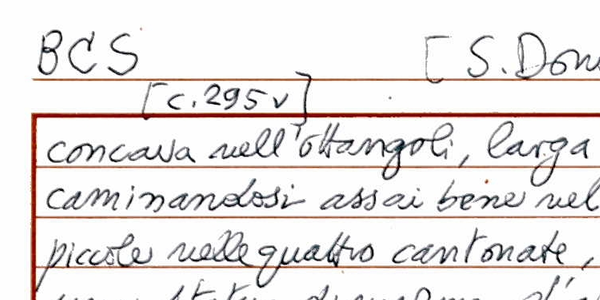 BCS [S. Don
[c. 295 v]
concava nell'ottangoli, larga
caminandosi assai bene nel
piccole nelle quattro cantonate,